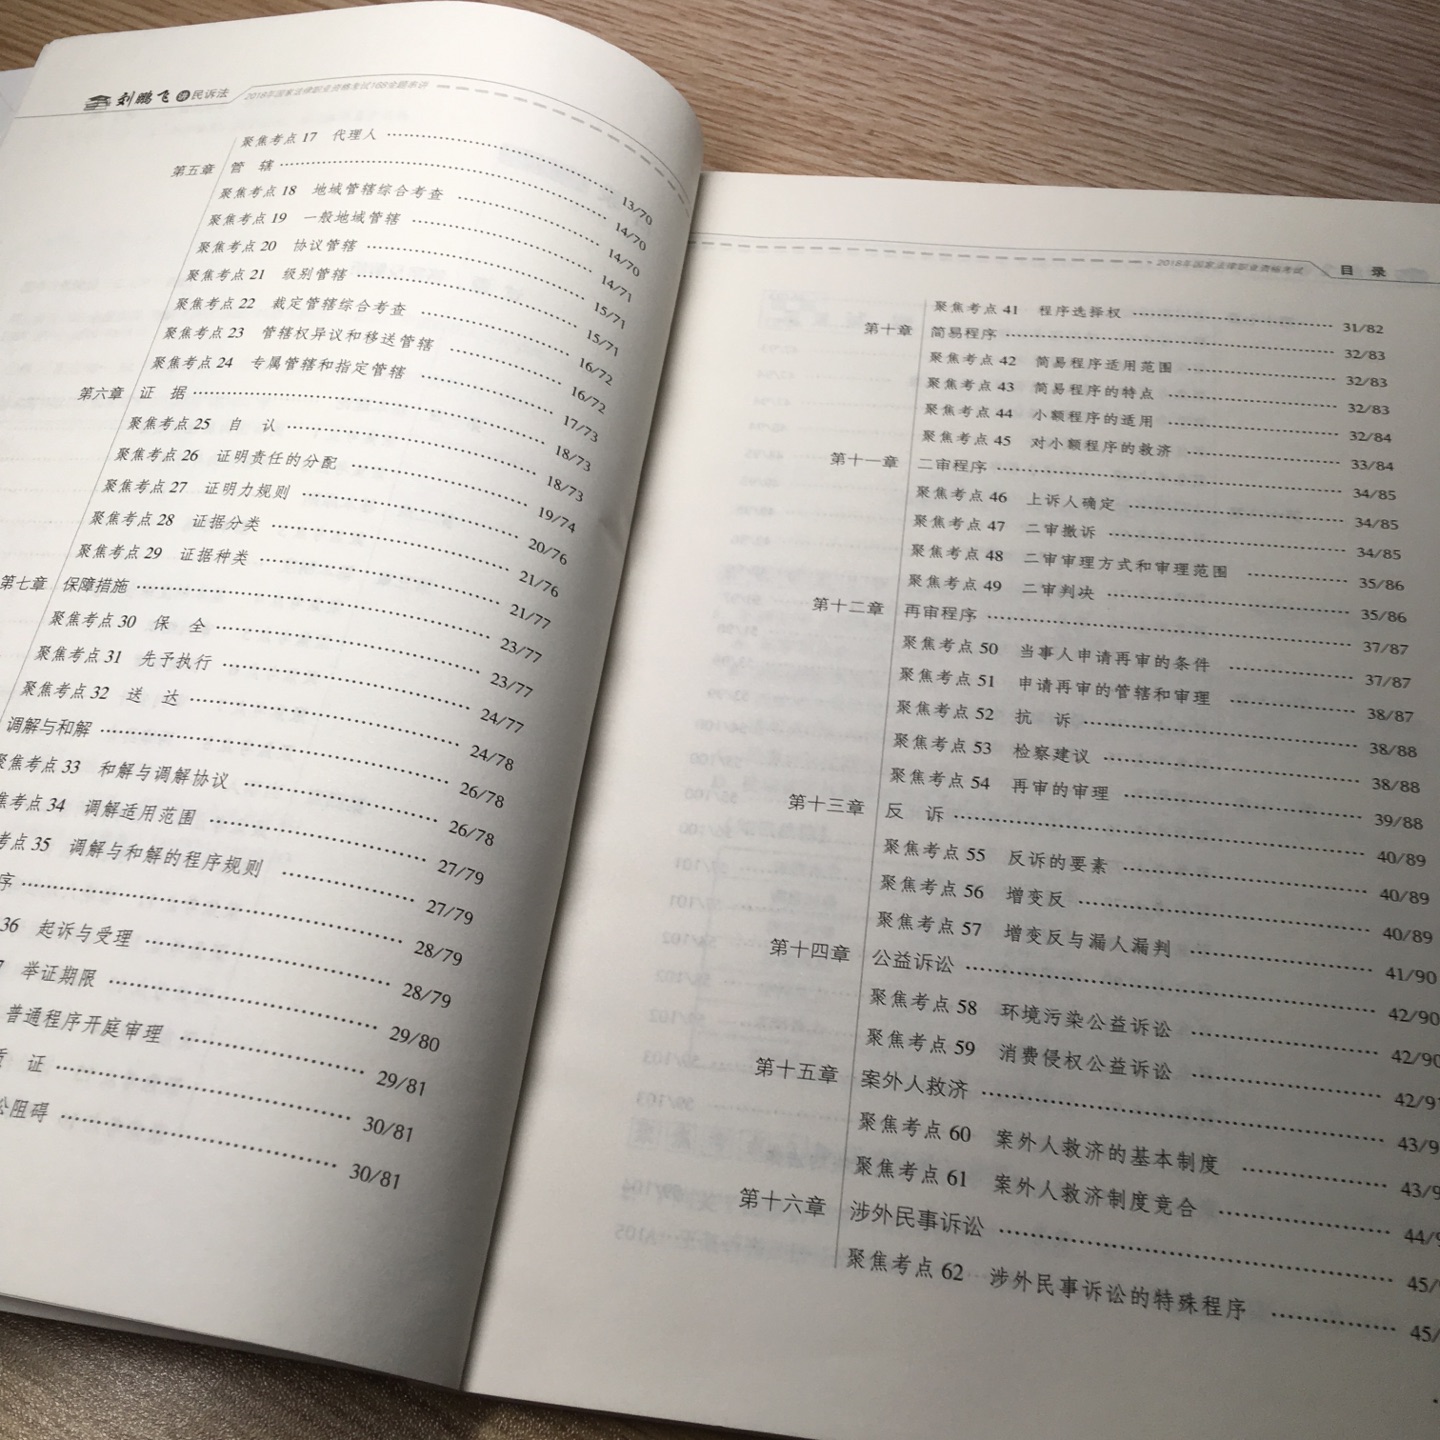 刘鹏飞讲民诉法 2018年国家法律职业资格考试168命题串讲
聚焦考点 17 代理人 …… 13/70
第五章 管 辖 …… 14/70
聚焦考点 18 地域管辖综合考查 …… 14/70
聚焦考点 19 一般地域管辖 …… 14/71
聚焦考点 20 协议管辖 …… 15/71
聚焦考点 21 级别管辖 …… 15/71
聚焦考点 22 裁定管辖综合考查 …… 16/72
聚焦考点 23 管辖权异议和移送管辖 …… 16/72
聚焦考点 24 专属管辖和指定管辖 …… 17/73
第六章 证 据 …… 18/73
聚焦考点 25 自 认 …… 18/73
聚焦考点 26 证明责任的分配 …… 19/74
聚焦考点 27 证明力规则 …… 20/76
聚焦考点 28 证据分类 …… 21/76
聚焦考点 29 证据种类 …… 21/77
第七章 保障措施 …… 23/77
聚焦考点 30 保 全 …… 23/77
聚焦考点 31 先予执行 …… 24/77
聚焦考点 32 送 达 …… 24/78
调解与和解 …… 26/78
聚焦考点 33 和解与调解协议 …… 26/78
焦考点 34 调解适用范围 …… 27/79
考点 35 调解与和解的程序规则 …… 27/79
序 …… 28/79
36 起诉与受理 …… 28/79
举证期限 …… 29/80
普通程序开庭审理 …… 29/81
证 …… 30/81
阻碍 …… 30/81
2018年国家法律职业资格考试 目 录
聚焦考点 41 程序选择权 …… 31/82
第十章 简易程序 …… 32/83
聚焦考点 42 简易程序适用范围 …… 32/83
聚焦考点 43 简易程序的特点 …… 32/83
聚焦考点 44 小额程序的适用 …… 32/84
聚焦考点 45 对小额程序的救济 …… 33/84
第十一章 二审程序 …… 34/85
聚焦考点 46 上诉人确定 …… 34/85
聚焦考点 47 二审撤诉 …… 34/85
聚焦考点 48 二审审理方式和审理范围 …… 35/86
聚焦考点 49 二审判决 …… 35/86
第十二章 再审程序 …… 37/87
聚焦考点 50 当事人申请再审的条件 …… 37/87
聚焦考点 51 申请再审的管辖和审理 …… 38/87
聚焦考点 52 抗 诉 …… 38/88
聚焦考点 53 检察建议 …… 38/88
聚焦考点 54 再审的审理 …… 39/88
第十三章 反 诉 …… 40/89
聚焦考点 55 反诉的要素 …… 40/89
聚焦考点 56 增变反 …… 40/89
聚焦考点 57 增变反与漏人漏判 …… 41/90
第十四章 公益诉讼 …… 42/90
聚焦考点 58 环境污染公益诉讼 …… 42/90
聚焦考点 59 消费侵权公益诉讼 …… 42/91
第十五章 案外人救济 …… 43/9
聚焦考点 60 案外人救济的基本制度 …… 43/9
聚焦考点 61 案外人救济制度竞合 …… 44/9
第十六章 涉外民事诉讼 …… 45/
聚焦考点 62 涉外民事诉讼的特殊程序 …… 45/